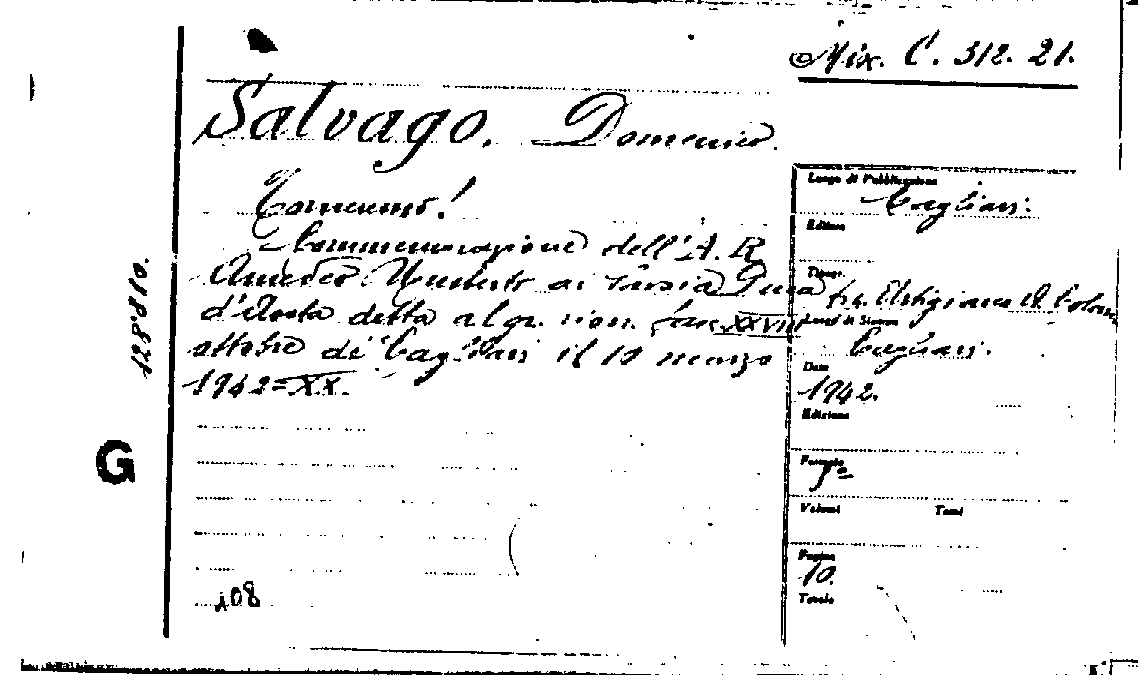 Mix. C. 312. 21.
Salvago, Domenico.
Camerano!
Commemorazione dell'A. R.
Amedeo Umberto di Savoia Duca
d'Aosta detta al gr. rion. fasc. XXVIII
ottobre di Cagliari il 10 marzo
1942=XX.
128810.
G
108
Luogo di Pubblicazione
Cagliari.
Editore
Tipogr.
Artigiana
Luogo di Stampa
Cagliari.
Data
1942.
Edizione
Formato
Volumi Tomi
Pagine
10.
Tavole